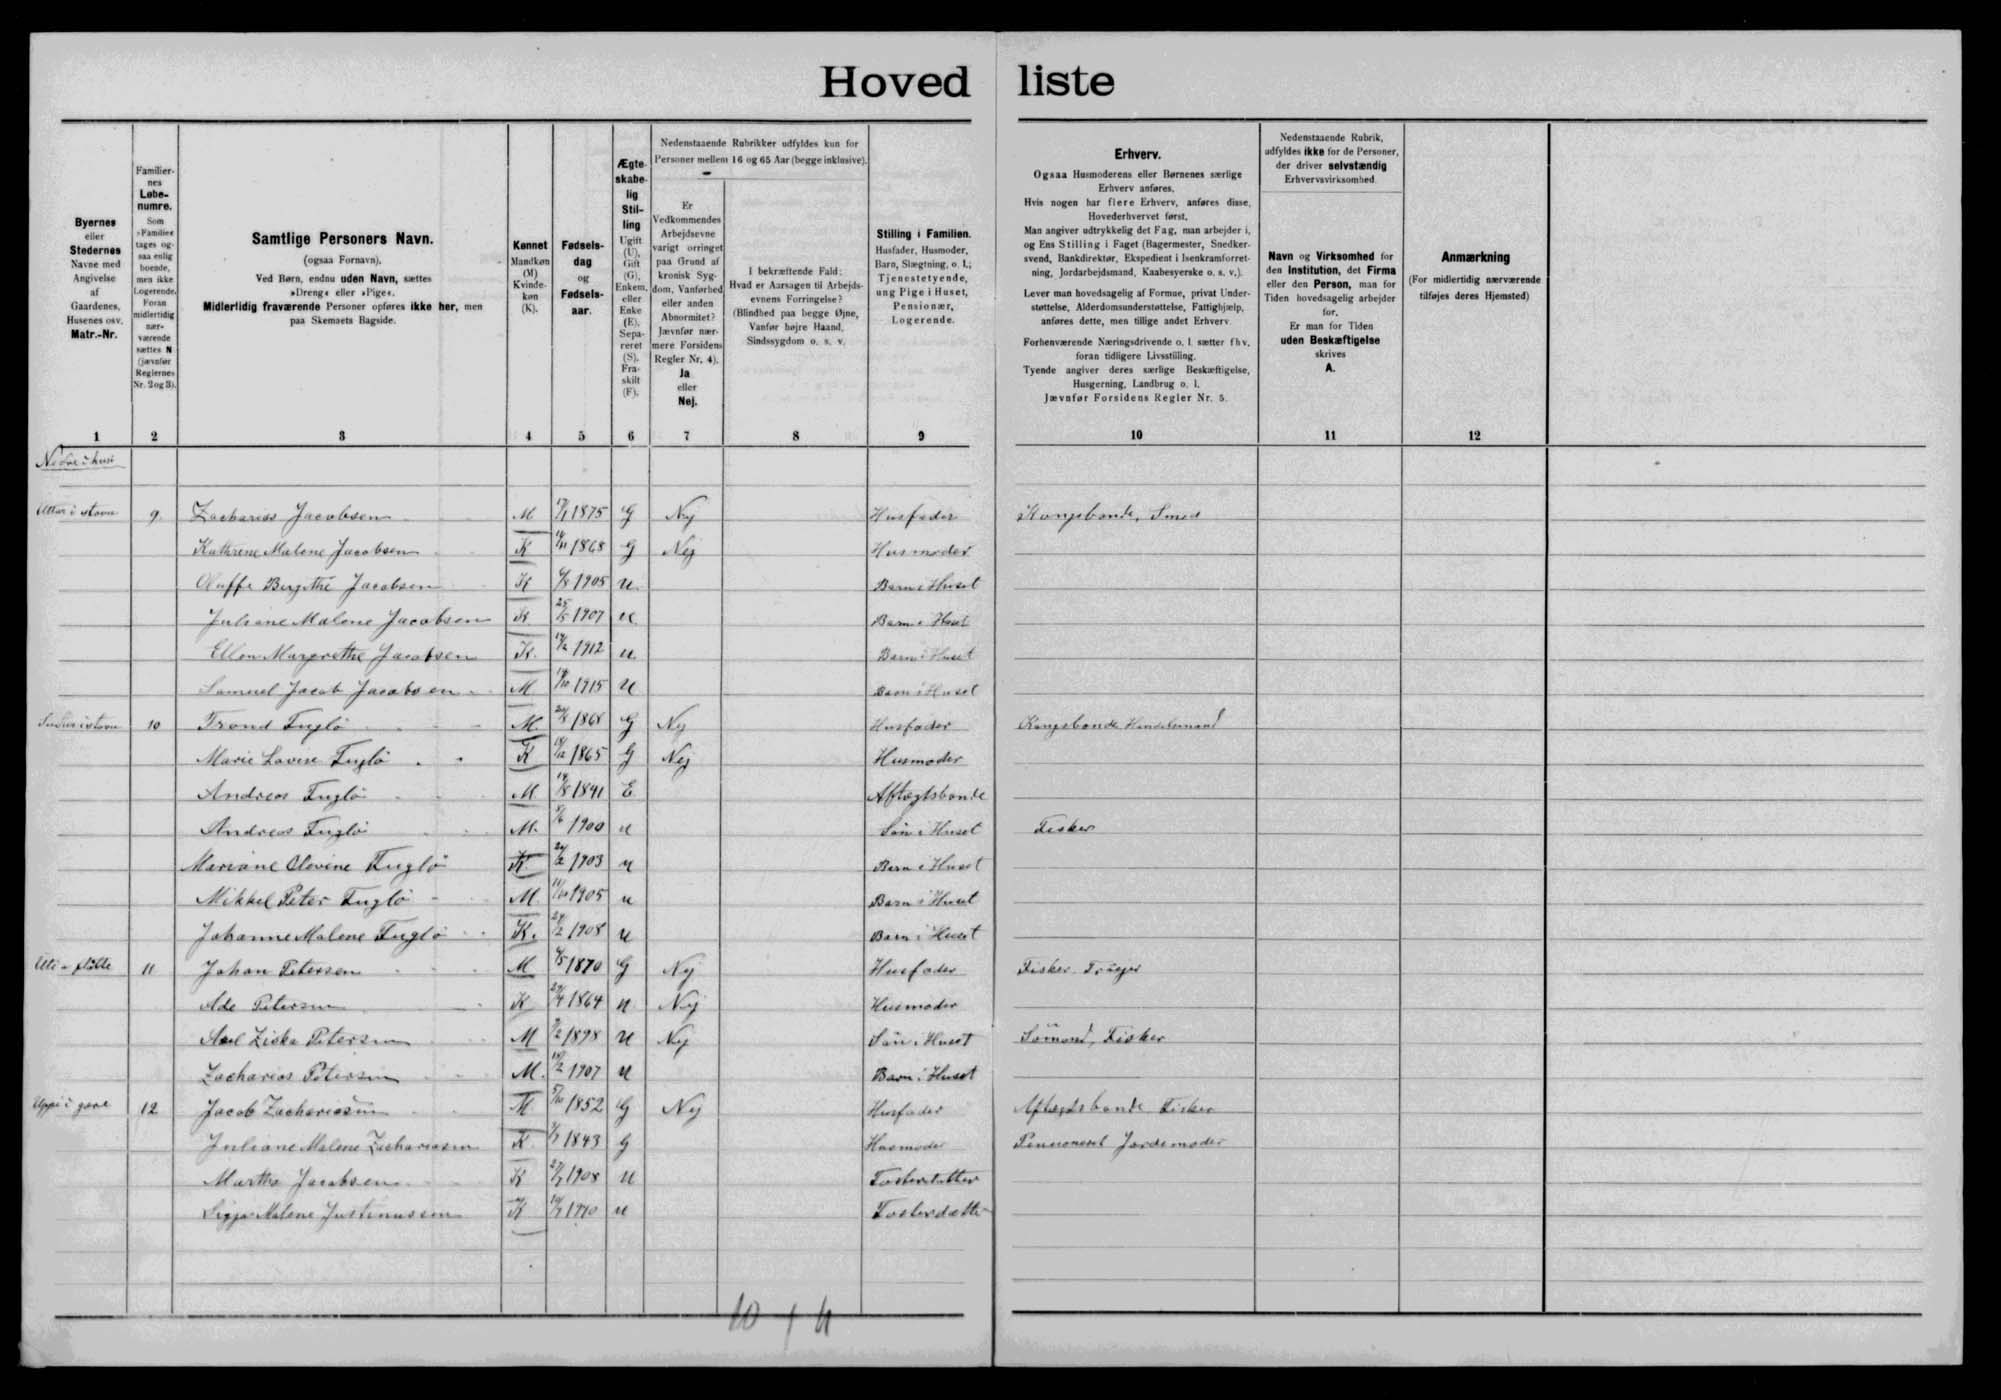 Hovedliste
Byernes
eller
Stedernes
Navne med
Angivelse
af
Gaardenes,
Husenes osv.
Matr.-Nr.
Familier-
nes
Løbe-
numre.
Som
»Familie«
tages og-
saa enlig
boende,
men ikke
Logerende.
Foran
midlertidig
nær-
værende
sættes N
(jævnfør
Reglernes
Nr. 2 og 3).
Samtlige Personers Navn.
(ogsaa Fornavn).
Ved Børn, endnu uden Navn, sættes
»Dreng« eller »Pige«.
Midlertidig fraværende Personer opføres ikke her, men
paa Skemaets Bagside.
Kønnet
Mandkøn
(M)
Kvinde-
køn
(K).
Fødsels-
dag
og
Fødsels-
aar.
Ægte-
skabe-
lig
Stil-
ling
Ugift
(U),
Gift
(G),
Enkem.
eller
Enke
(E),
Sepa-
reret
(S),
Fra-
skilt
(F).
Nedenstaaende Rubrikker udfyldes kun for
Personer mellem 16 og 65 Aar (begge inklusive).
Er
Vedkommendes
Arbejdsevne
varigt forringet
paa Grund af
kronisk Syg-
dom, Vanførhed
eller anden
Abnormitet?
Jævnfør nær-
mere Forsidens
Regler Nr. 4).
Ja
eller
Nej.
I bekræftende Fald:
Hvad er Aarsagen til Arbejds-
evnens Forringelse?
(Blindhed paa begge Øjne,
Vanfør højre Haand,
Sindssygdom o. s. v.
Stilling i Familien.
Husfader, Husmoder,
Barn, Slægtning, o. l.;
Tjenestetyende,
ung Pige i Huset,
Pensionær,
Logerende.
Erhverv.
Ogsaa Husmoderens eller Børnenes særlige
Erhverv anføres.
Hvis nogen har flere Erhverv, anføres disse,
Hovederhvervet først.
Man angiver udtrykkelig det Fag, man arbejder i,
og Ens Stilling i Faget (Bagermester, Snedker-
svend, Bankdirektør, Ekspedient i Isenkramforret-
ning, Jordarbejdsmand, Kaabesyerske o. s. v.).
Lever man hovedsagelig af Formue, privat Under-
støttelse, Alderdomsunderstøttelse, Fattighjælp,
anføres dette, men tillige andet Erhverv.
Forhenværende Næringsdrivende o. l. sætter fhv.
foran tidligere Livsstilling.
Tyende angiver deres særlige Beskæftigelse,
Husgerning, Landbrug o. l.
Jævnfør Forsidens Regler Nr. 5.
Nedenstaaende Rubrik,
udfyldes ikke for de Personer,
der driver selvstændig
Erhvervsvirksomhed.
Navn og Virksomhed for
den Institution, det Firma
eller den Person, man for
Tiden hovedsagelig arbejder
for.
Er man for Tiden
uden Beskæftigelse
skrives
A.
Anmærkning
(For midlertidig nærværende
tilføjes deres Hjemsted)
1 2 3 4 5 6 7 8 9 10 11 12
Nedri i husi
Uttar i stovu 9. Zacharias Jacobsen M 1875 G Nej Husfader Kongsbonde, Smed
Kathrine Malene Jacobsen K 1868 G Nej Husmoder
Oluffe Birgithe Jacobsen K 1905 U Barn i Huset
Juliane Malene Jacobsen K 25/5 1907 U Barn i Huset
Ellen Margrethe Jacobsen K. 1912 U Barn i Huset
Samuel Jacob Jacobsen M 1915 U Barn i Huset
10 Trond Fuglø M. 1868 G Nej Husfader Kongsbonde Handelsmand
Marie Lovise Fuglø K 1865 G Nej Husmoder
Andreas Fuglø M 1841 E Aftægtsbonde
Andreas Fuglø M. 1900 U Søn i Huset Fisker
Mariane Elovine Fuglø K 1903 U Barn i Huset
Mikkel Peter Fuglø M. 1905 U Barn i Huset
Johanne Malene Fuglø K. 1908 U Barn i Huset
11 Johan Petersen M 1870 G Nej Husfader Fisker
Ade Petersen K 1864 U Nej Husmoder
Axel Ziska Petersen M 1898 U Nej Søn i Huset Sømand, Fisker
Zacharias Petersen M. 1907 U Barn i Huset
Uppi i gare 12 Jacob Zachariasen M 1852 G Nej Husfader Aftægtsbonde Fisker
Juliane Malene Zachariasen K 1843 G Husmoder Pensioneret Jordemoder
Martha Jacobsen K 1908 U Fosterdatter
Sigga Malene Justinussen K 1910 U Fosterdatter
10 + 11